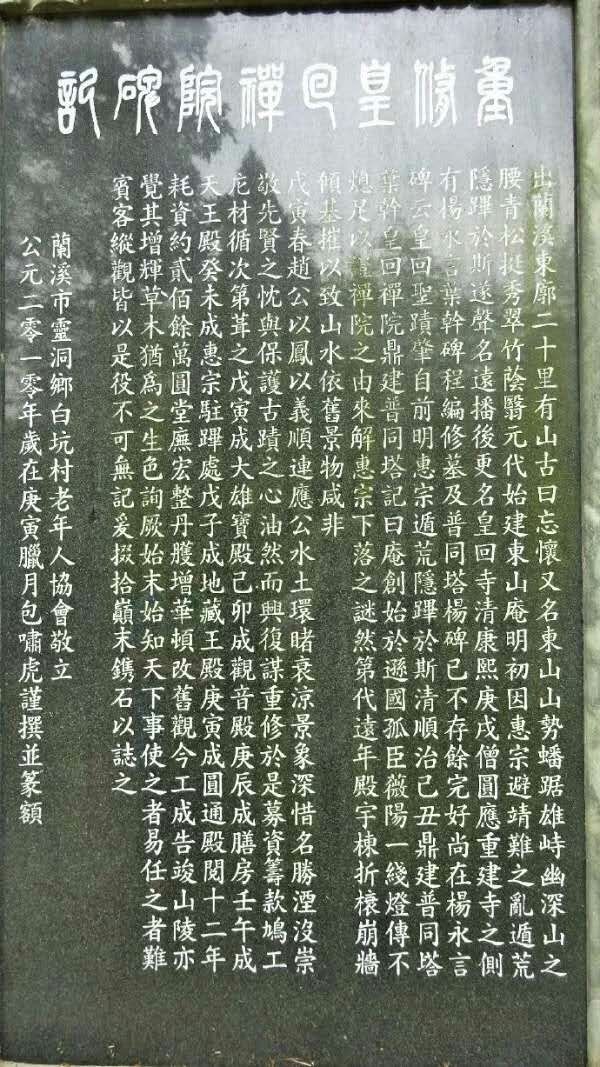 重修皇回禪院碑記
出蘭溪東廓二十里有山古曰忘懷又名東山山勢蟠踞雄峙幽深山之
腰青松挺秀翠竹蔭翳元代始建東山庵明初因惠宗避靖難之亂遁荒
隱蹕於斯遂聲名遠播後更名皇回寺清康熙庚戌僧圓應重建寺之側
有楊永言葉幹碑程編修墓及普同塔楊碑已不存餘完好尚在楊永言
碑云皇回聖蹟肇自前明惠宗遁荒隱蹕於斯清順治己丑鼎建普同塔
葉幹皇回禪院鼎建普同塔記曰庵創始於遜國孤臣薇陽一綫燈傳不
熄足以證禪院之由來解惠宗下落之謎然第代遠年殿宇棟折榱崩牆
傾基摧以致山水依舊景物咸非
戊寅春趙公以鳳以義順連應公水土環睹衰涼景象深惜名勝湮沒崇
敬先賢之忱與保護古蹟之心油然而興復謀重修於是募資籌款鳩工
庀材循次第葺之戊寅成大雄寶殿己卯成觀音殿庚辰成膳房壬午成
天王殿癸未成惠宗駐蹕處戊子成地藏王殿庚寅成圓通殿閱十二年
耗資約貳佰餘萬圓堂廡宏整丹雘增華頓改舊觀今工成告竣山陵亦
覺其增輝草木猶為之生色詢厥始末始知天下事使之者易任之者難
賓客縱觀皆以是役不可無記爰掇拾巔末鐫石以誌之
蘭溪市靈洞鄉白坑村老年人協會敬立
公元二零一零年歲在庚寅臘月包嘯虎謹撰並篆額